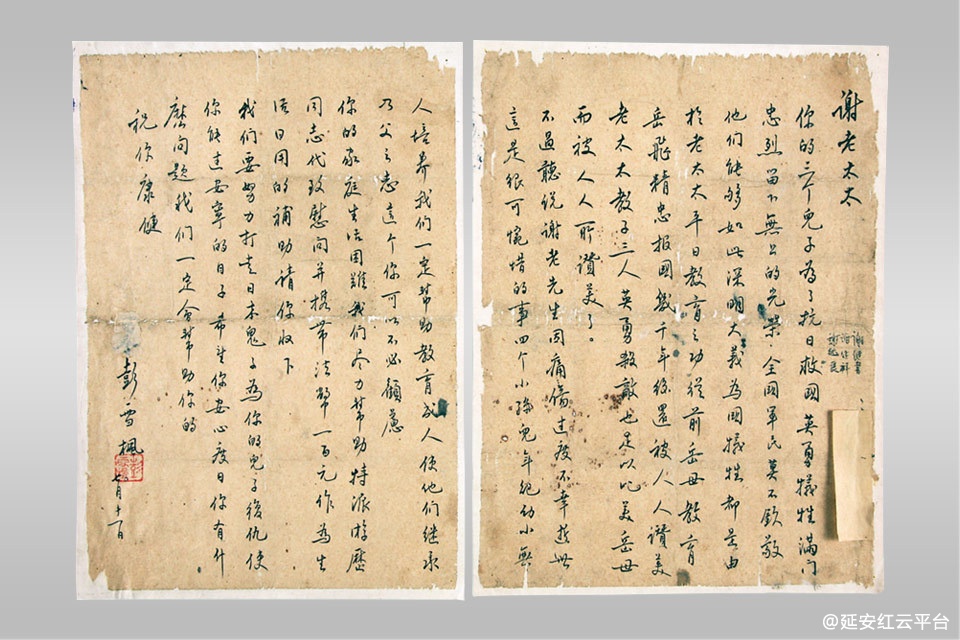 谢老太太
你的三个兒子為了抗日救國英勇犧牲滿门
忠烈留下無上的光荣全國軍民莫不欽敬
他们能够如此深明大義為國犧牲都是由
於老太太平日教育之功從前岳母教育
岳飛精忠报國幾千年後還被人人讚美
老太太教子三人英勇殺敵也足以比美岳母
而被人人所讚美了。
不過聽说谢老先生因痛傷过度不幸逝世
這是很可惋惜的事四个小孫兒年纪幼小無
人培养我们一定幫助教育成人使他们继承
乃父之志這个你可以不必顧慮
你的家庭生活困難我们尽力幫助特派游歷
同志代致慰问并携带法幣一百元作為生
活日用的補助請你收下
我们要努力打走日本鬼子為你的兒子復仇使
你能过安寧的日子希望你安心度日你有什
麽问题我们一定会幫助你的
祝你康健
彭雪楓
七月十一日
@延安红云平台